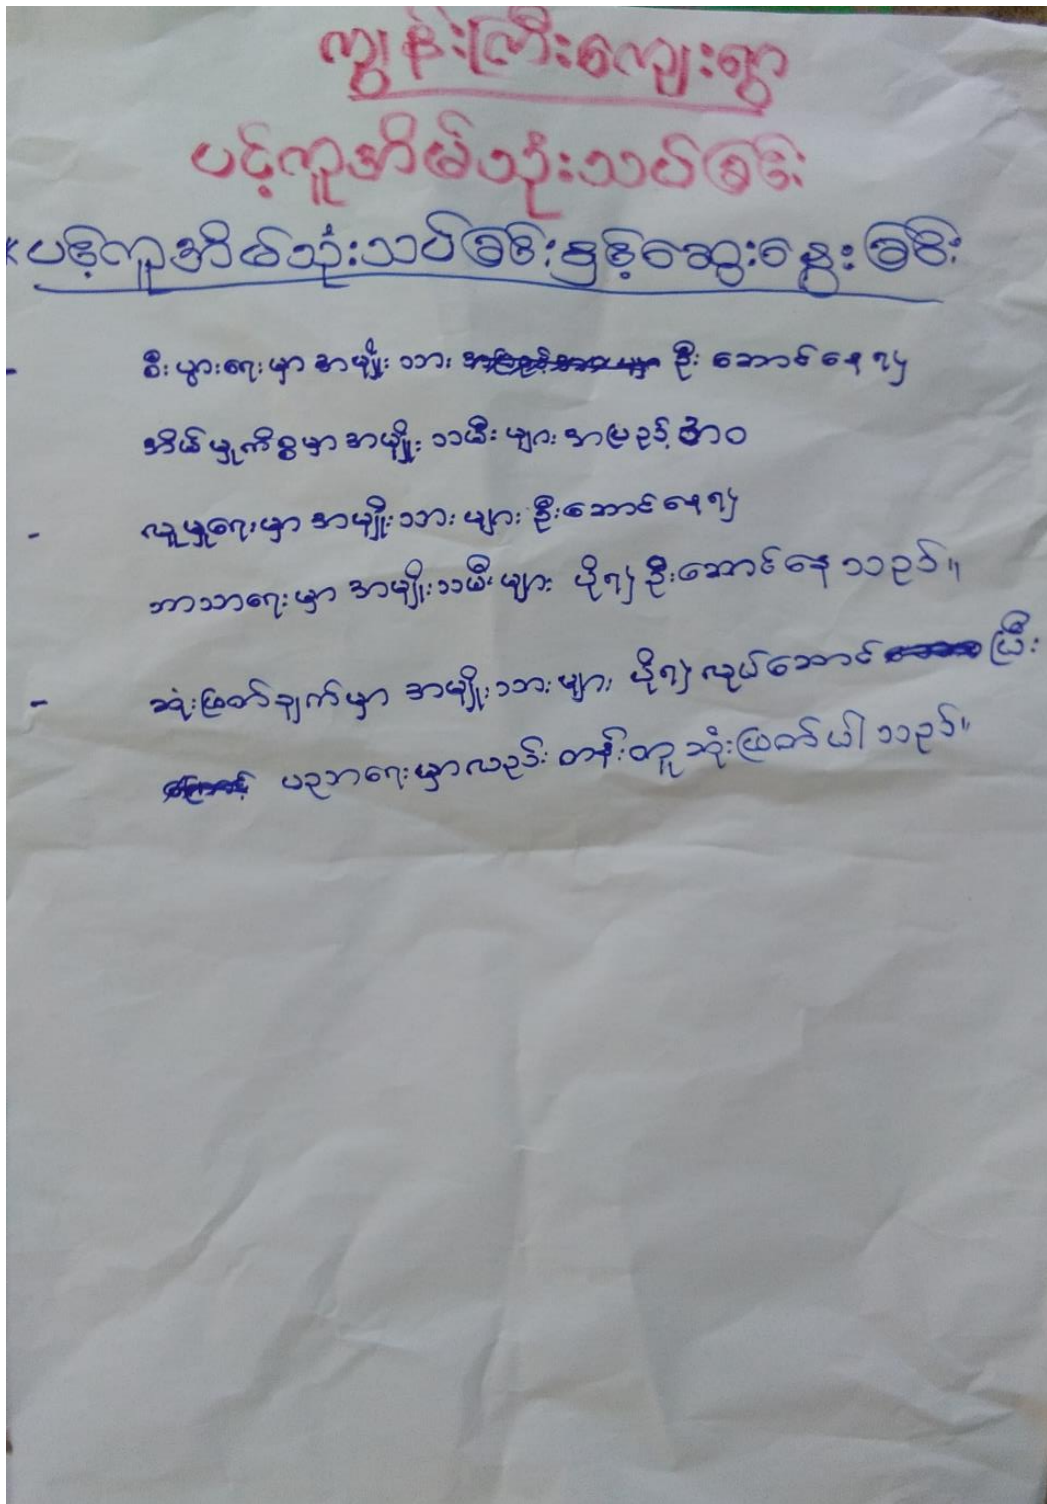 ကျွန်းကြီးကျေးရွာ
ပင့်ကူအိမ်သုံးသပ်ခြင်း
ပင့်ကူအိမ်သုံးသပ်ခြင်းနှင့်ဆွေးနွေးခြင်း
- စီးပွားရေးမှာ အမျိုးသား ဦးဆောင်နေရ၍
အိမ်မှုကိစ္စမှာ အမျိုးသမီးများ အမြဉ်တာဝ
- လူမှုရေးမှာ အမျိုးသားများ ဦးဆောင်နေရ၍
ဘာသာရေးမှာ အမျိုးသမီးများ ပို၍ ဦးဆောင်နေသည်။
- ဆုံးဖြတ်ချက်မှာ အမျိုးသားများ ပို၍ လုပ်ဆောင် ပြီး
ပညာရေးမှာလည်း တန်းတူ ဆုံးဖြတ်ပါသည်။